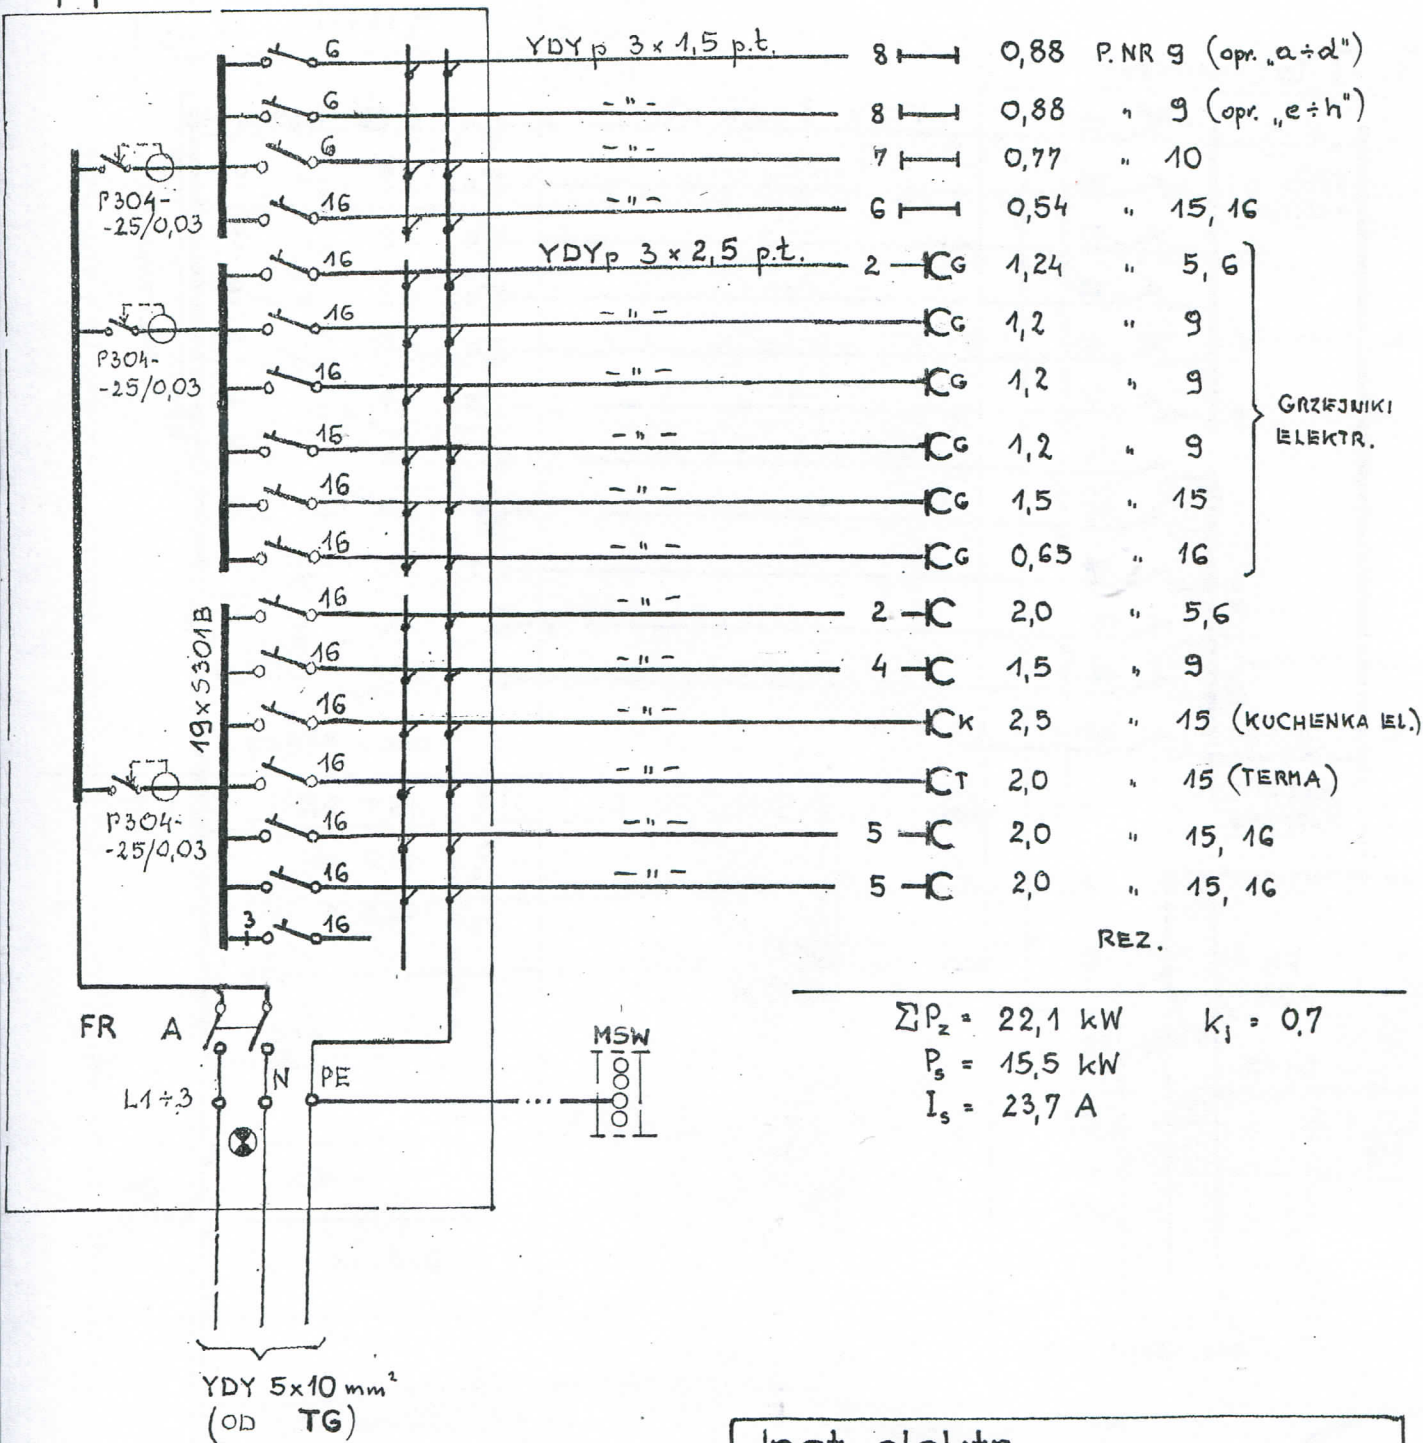 6 YDYp 3 x 1,5 p.t. 8 0,88 P. NR 9 (opr. „a÷d")
6 - " - 8 0,88 " 9 (opr. „e÷h")
6 - " - 7 0,77 " 10
P304-
-25/0,03
16 - " - 6 0,54 " 15, 16
16 YDYp 3 x 2,5 p.t. 2 G 1,24 " 5, 6
16 - " - G 1,2 " 9
P304-
-25/0,03
16 - " - G 1,2 " 9
15 - " - G 1,2 " 9
GRZEJNIKI
ELEKTR.
16 - " - G 1,5 " 15
16 - " - G 0,65 " 16
19 x S301B
16 - " - 2 2,0 " 5,6
16 - " - 4 1,5 " 9
16 - " - K 2,5 " 15 (KUCHENKA EL.)
16 - " - T 2,0 " 15 (TERMA)
P304-
-25/0,03
16 - " - 5 2,0 " 15, 16
16 - " - 5 2,0 " 15, 16
3 16 REZ.
FR A
ΣPz = 22,1 kW kj = 0,7
Ps = 15,5 kW
Is = 23,7 A
MSW
L1÷3 N PE
YDY 5x10 mm²
(OD TG)